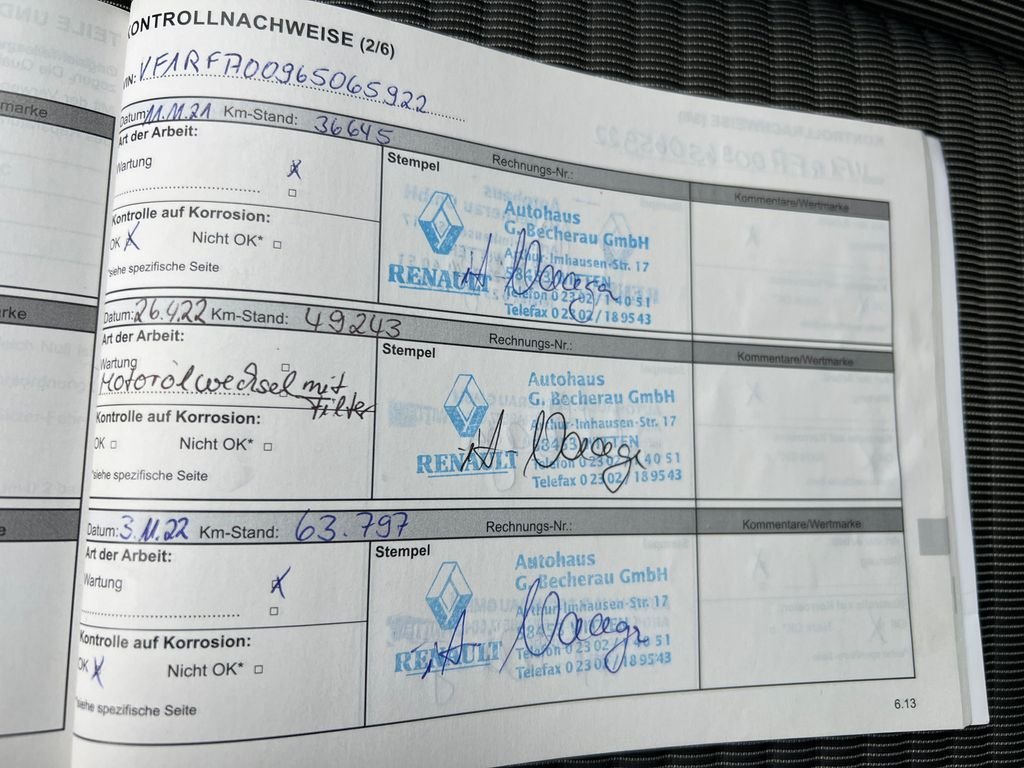 KONTROLLNACHWEISE (2/6)
VIN: VF1RFA00965065922
Datum: 11.11.21 Km-Stand: 36645
Rechnungs-Nr.:
Kommentare/Wertmarke
Art der Arbeit:
Wartung
Kontrolle auf Korrosion:
OK Nicht OK*
*siehe spezifische Seite
Stempel
Autohaus
G. Becherau GmbH
Arthur-Imhausen-Str. 17
RENAULT
Telefon 0 23 02 / 1 40 51
Telefax 0 23 02 / 18 95 43
Datum: 26.4.22 Km-Stand: 49243
Rechnungs-Nr.:
Kommentare/Wertmarke
Art der Arbeit:
Wartung
Motorölwechsel mit
Filter
Kontrolle auf Korrosion:
OK Nicht OK*
*siehe spezifische Seite
Stempel
Autohaus
G. Becherau GmbH
Arthur-Imhausen-Str. 17
RENAULT
Telefon 0 23 02 / 1 40 51
Telefax 0 23 02 / 18 95 43
Datum: 3.11.22 Km-Stand: 63.797
Rechnungs-Nr.:
Kommentare/Wertmarke
Art der Arbeit:
Wartung
Kontrolle auf Korrosion:
OK Nicht OK*
*siehe spezifische Seite
Stempel
Autohaus
G. Becherau GmbH
Arthur-Imhausen-Str. 17
RENAULT
Telefon 0 23 02 / 1 40 51
Telefax 0 23 02 / 18 95 43
6.13